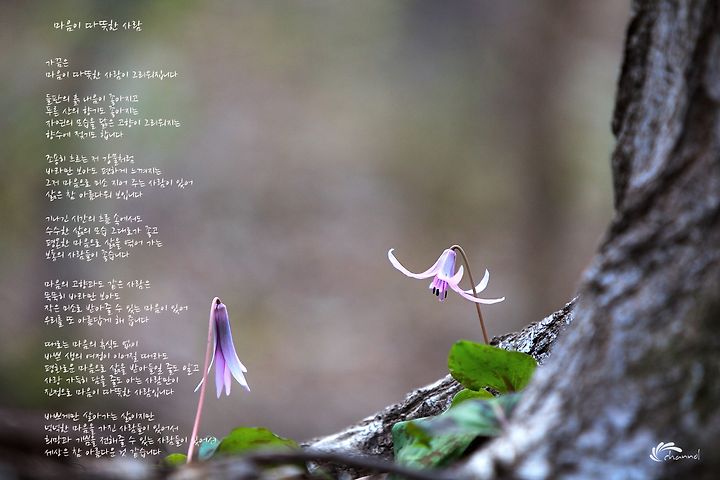 마음이 따뜻한 사람
가끔은
마음이 따뜻한 사람이 그리워집니다
들판의 흙 내음이 좋아지고
푸른 산의 향기도 좋아지는
자연의 모습을 닮은 고향이 그리워지는
향수에 젖기도 합니다
조용히 흐르는 저 강물처럼
바라만 보아도 편하게 느껴지는
그저 마음으로 미소 지어 주는 사람이 있어
삶은 참 아름다워 보입니다
기나긴 시간의 흐름 속에서도
수수한 삶의 모습 그대로가 좋고
평온한 마음으로 삶을 엮어 가는
보통의 사람들이 좋습니다
마음의 고향과도 같은 사람은
은은히 바라만 보아도
작은 미소로 받아줄 수 있는 마음이 있어
우리를 또 아름답게 해 줍니다
때로는 마음의 휴식도 없이
바쁜 생의 여정이 이어질 때라도
평화로운 마음으로 삶을 받아들일 줄도 알고
사랑 가득히 담을 줄도 아는 사람만이
진정으로 마음이 따뜻한 사람입니다
바쁘게만 살아가는 삶이지만
넉넉한 마음을 가진 사람들이 있어서
희망과 기쁨을 전해줄 수 있는 사람들이 있어서
세상은 참 아름다운 것 같습니다
channel